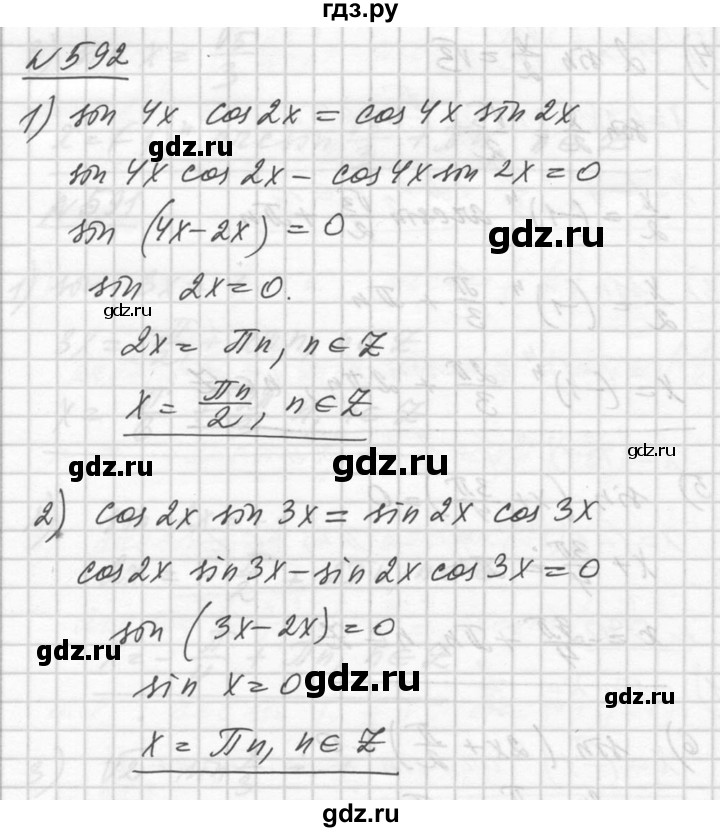 гдз.ру
№592
1) sin 4x cos 2x = cos 4x sin 2x
gdz.ru
sin 4x cos 2x - cos 4x sin 2x = 0
sin (4x - 2x) = 0
gdz.ru
sin 2x = 0.
gdz.ru
2x = πn, n ∈ Z
x = πn/2, n ∈ Z
gdz.ru gdz.ru gdz.ru
2) cos 2x sin 3x = sin 2x cos 3x
cos 2x sin 3x - sin 2x cos 3x = 0
sin (3x - 2x) = 0
gdz.ru
sin x = 0
gdz.ru gdz.ru
x = πn, n ∈ Z
gdz.ru